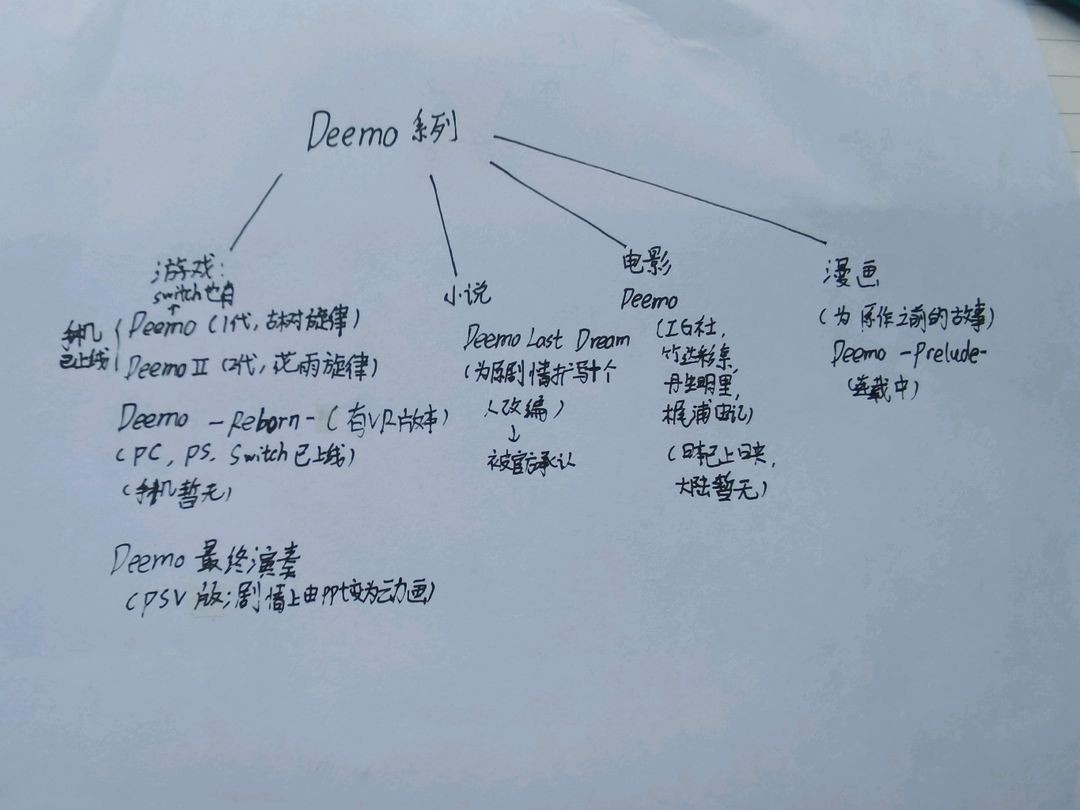 Deemo 系列
游戏:
switch也有
↑
手机已上线
Deemo (1代, 古树旋律)
DeemoⅡ (2代, 花雨旋律)
Deemo -Reborn- (有VR版本)
(PC, PS, Switch已上线)
(手机暂无)
Deemo 最终演奏
(PSV 版; 剧情上由ppt变为动画)
小说
Deemo Last Dream
(为原剧情扩写+个
人改编)
↓
被官方承认
电影
Deemo
(I G社,
竹达彩奈,
丹生明里,
梶浦由记)
(日本已上映,
大陆暂无)
漫画
(为原作之前的故事)
Deemo -Prelude-
(连载中)